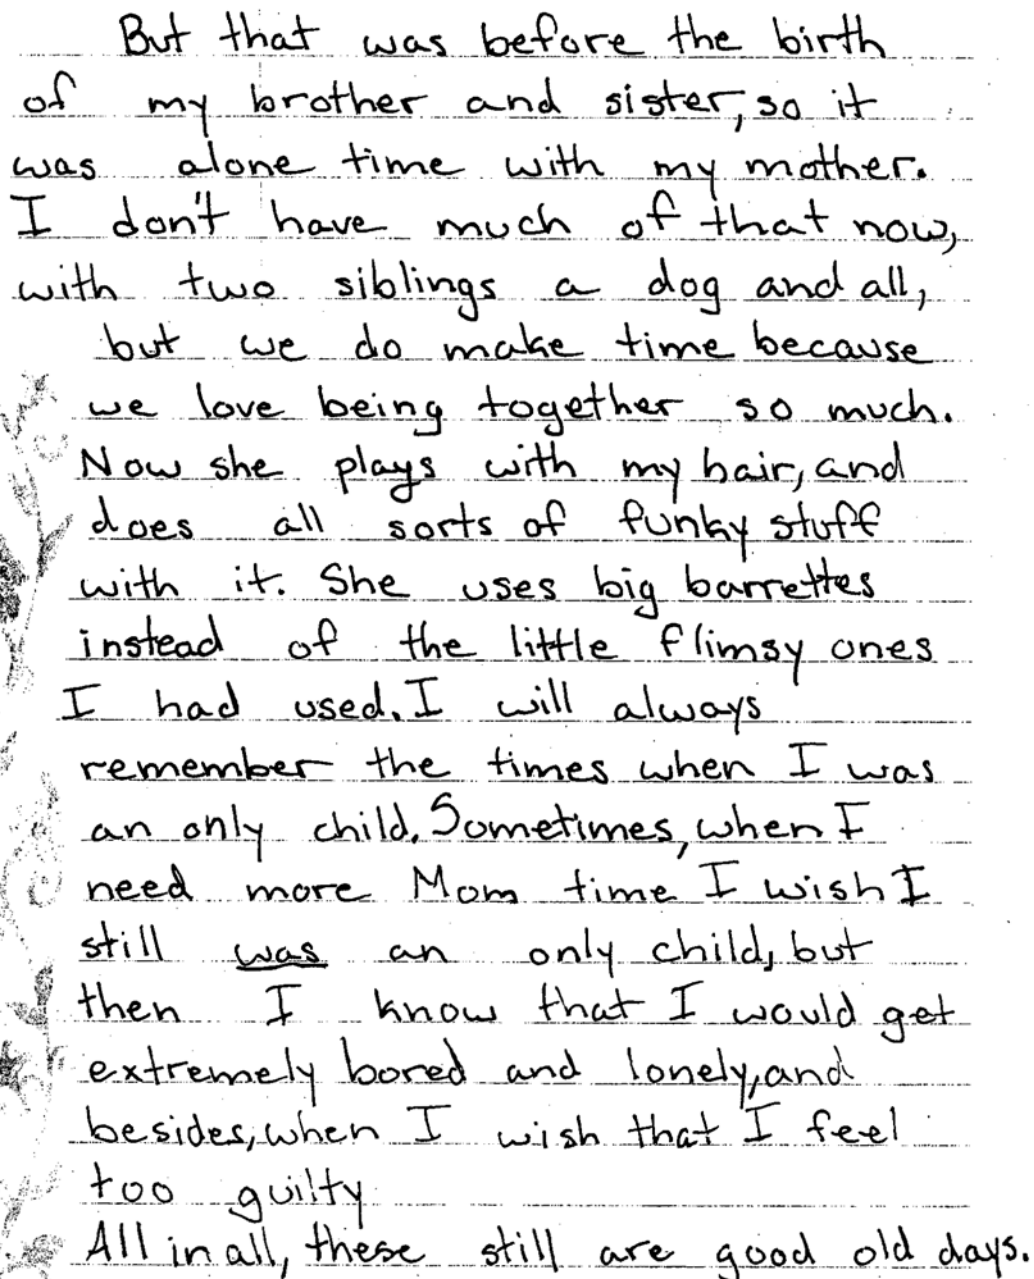 But that was before the birth
of my brother and sister, so it
was alone time with my mother.
I don't have much of that now,
with two siblings a dog and all,
but we do make time because
we love being together so much.
Now she plays with my hair, and
does all sorts of funky stuff
with it. She uses big barrettes
instead of the little flimsy ones
I had used. I will always
remember the times when I was
an only child. Sometimes, when I
need more Mom time I wish I
still was an only child, but
then I know that I would get
extremely bored and lonely, and
besides, when I wish that I feel
too guilty
All in all, these still are good old days.